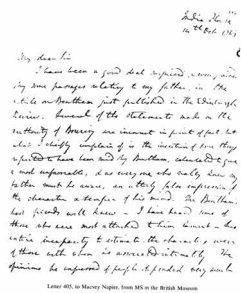 India House
14th Oct. 1843
My dear Sir
I have been a good deal surprised, & very
by some passages relating to my father, in the
article on Bentham just published in the Edinburgh
Review. Several of the statements made on the
authority of Bowring are incorrect in point of fact: but
what I chiefly complain of is the insertion of some things
reputed to have been said by Bentham, calculated to give
a most unfavorable, & as every one who really knew my
father must be aware, an utterly false impression of
the character & temper of his mind. Mr. Bentham's
best friends well knew — I have heard some of
those who were most attached to him lament — his
entire incapacity to estimate the characters even
of those with whom he was intimate. The
opinions he expressed of people depended very much
Letter 405, to Macvey Napier, from MS in the British Museum